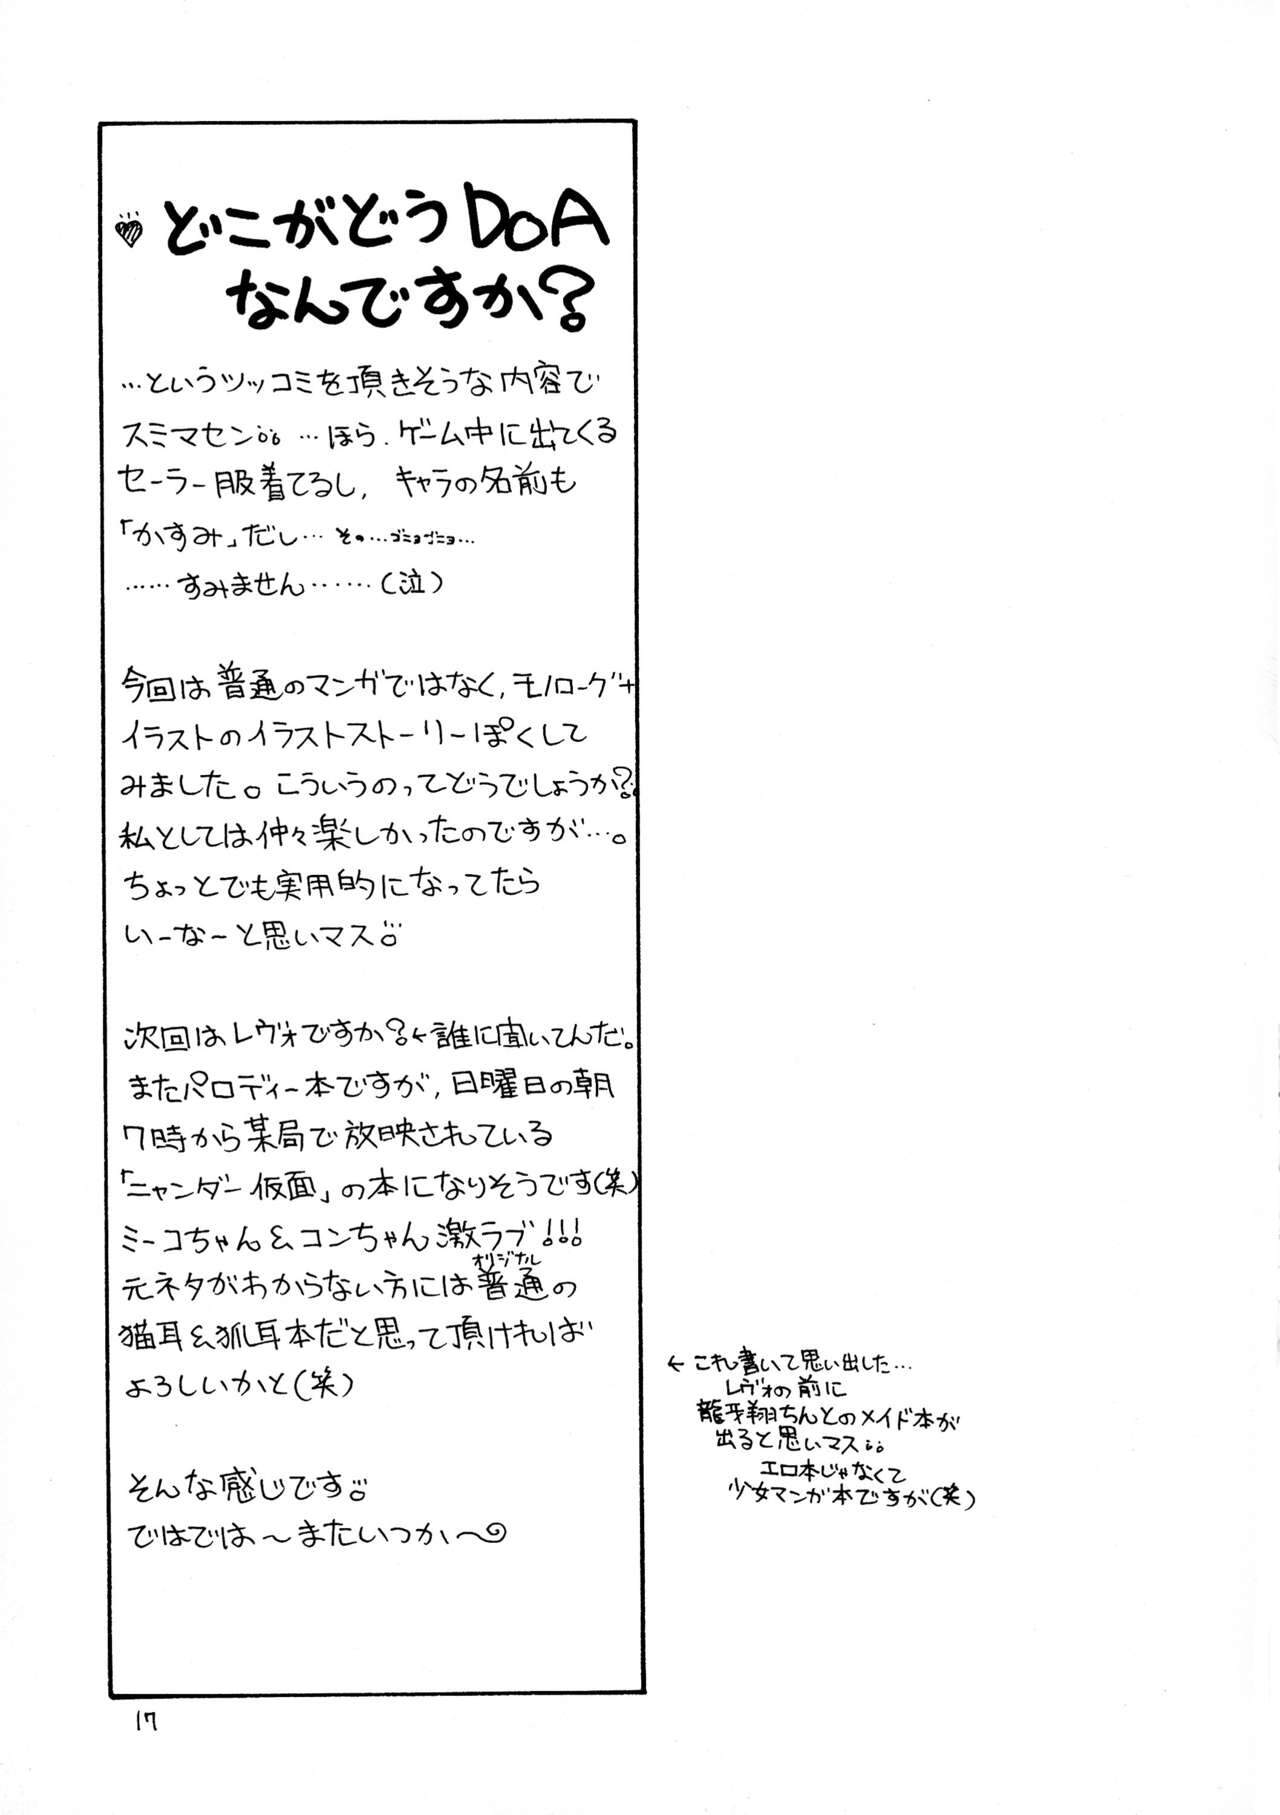 どこがどうDOA
なんですか?
…というツッコミを頂きそうな内容で
スミマセン。…ほら、ゲーム中に出てくる
セーラー服着てるし、キャラの名前も
「かすみ」だし…その…ゴニョゴニョ…
……すみません……(泣)
今回は普通のマンガではなく、モノローグ+
イラストのイラストストーリーぽくして
みました。こういうのってどうでしょうか?
私としては仲々楽しかったのですが…。
ちょっとでも実用的になってたら
いーなーと思いマス
次回はレヴォですか?←誰に聞いてんだ。
またパロディー本ですが、日曜日の朝
7時から某局で放映されている
「ニャンダー仮面」の本になりそうです(笑)
ミーコちゃん&コンちゃん激ラブ!!!
オリジナル
元ネタがわからない方には普通の
猫耳&狐耳本だと思って頂ければ
よろしいかと(笑)
そんな感じです
ではでは〜またいつか〜
←これ書いて思い出した…
レヴォの前に
龍牙翔ちんとのメイド本が
出ると思いマス
エロ本じゃなくて
少女マンガ本ですが(笑)
17